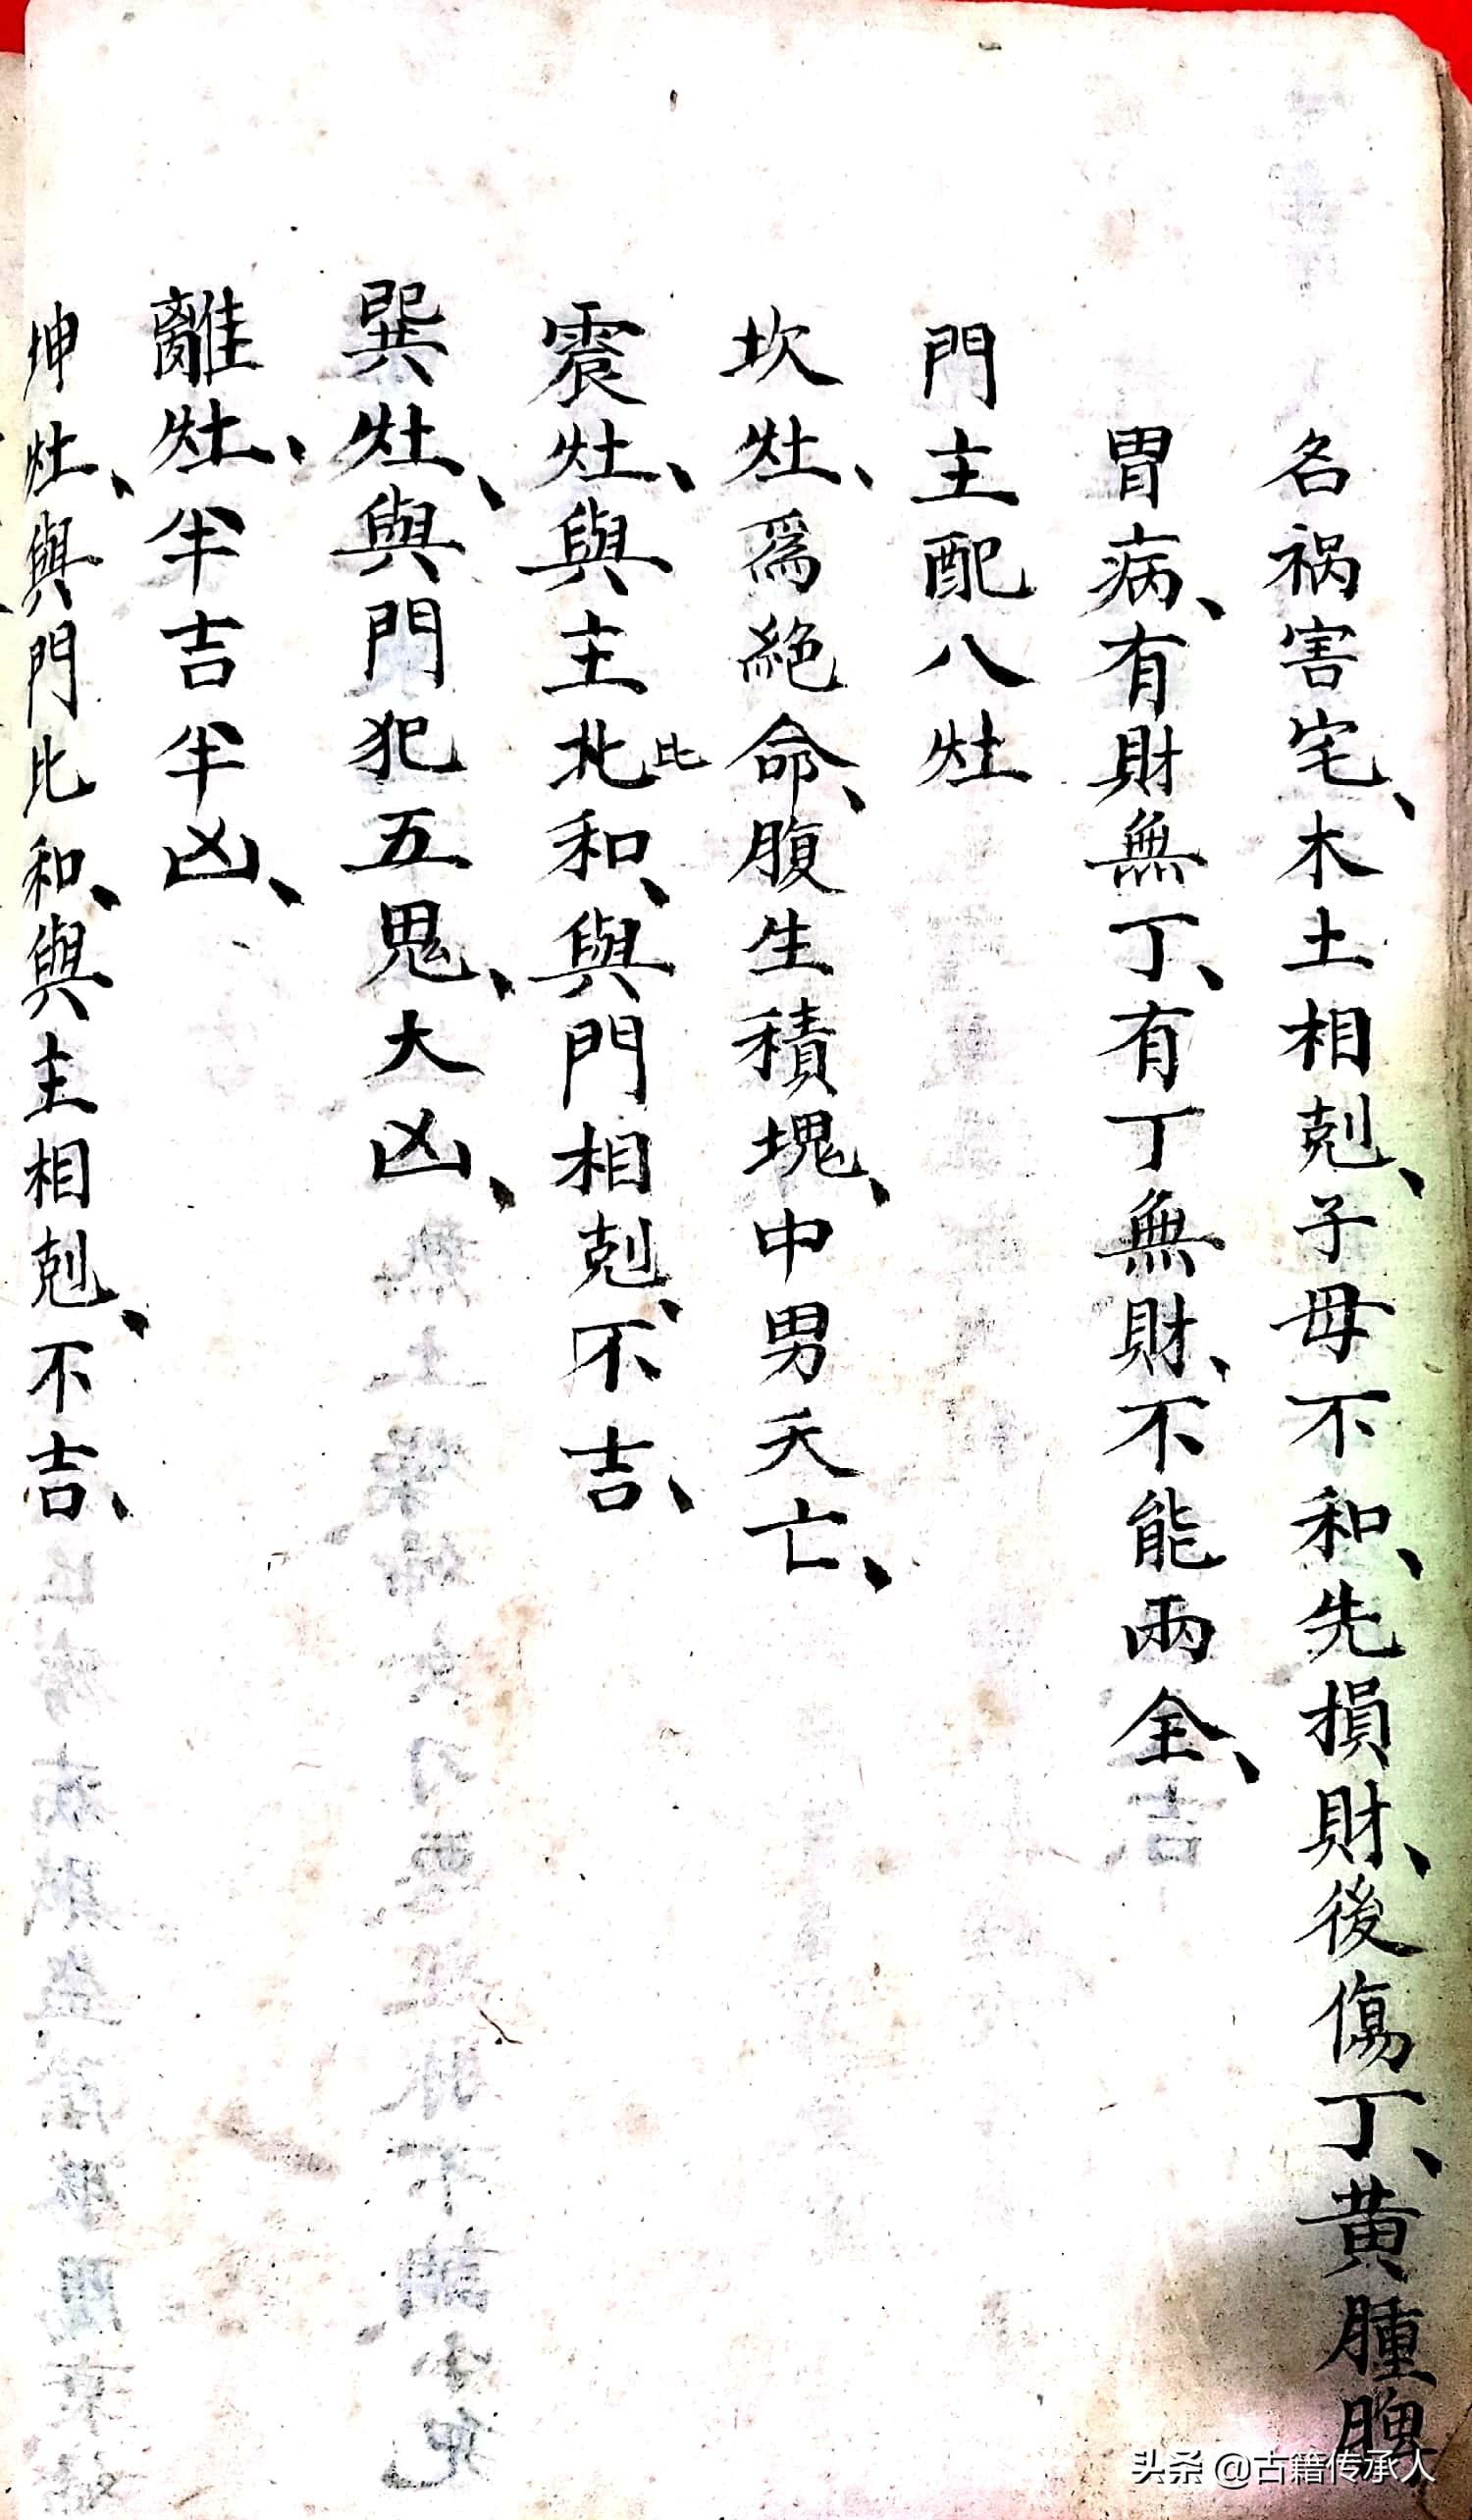 名祸害宅、木土相剋、子母不和、先損財、後傷丁、黄腫脾
胃病、有財無丁、有丁無財、不能兩全、
門主配八灶
坎灶、爲絕命、腹生積塊、中男夭亡、
震灶、與主北比和、與門相剋、不吉、
巽灶、與門犯五鬼、大凶、
離灶、半吉半凶、
坤灶、與門比和、與主相剋、不吉、
头条 @古籍传承人